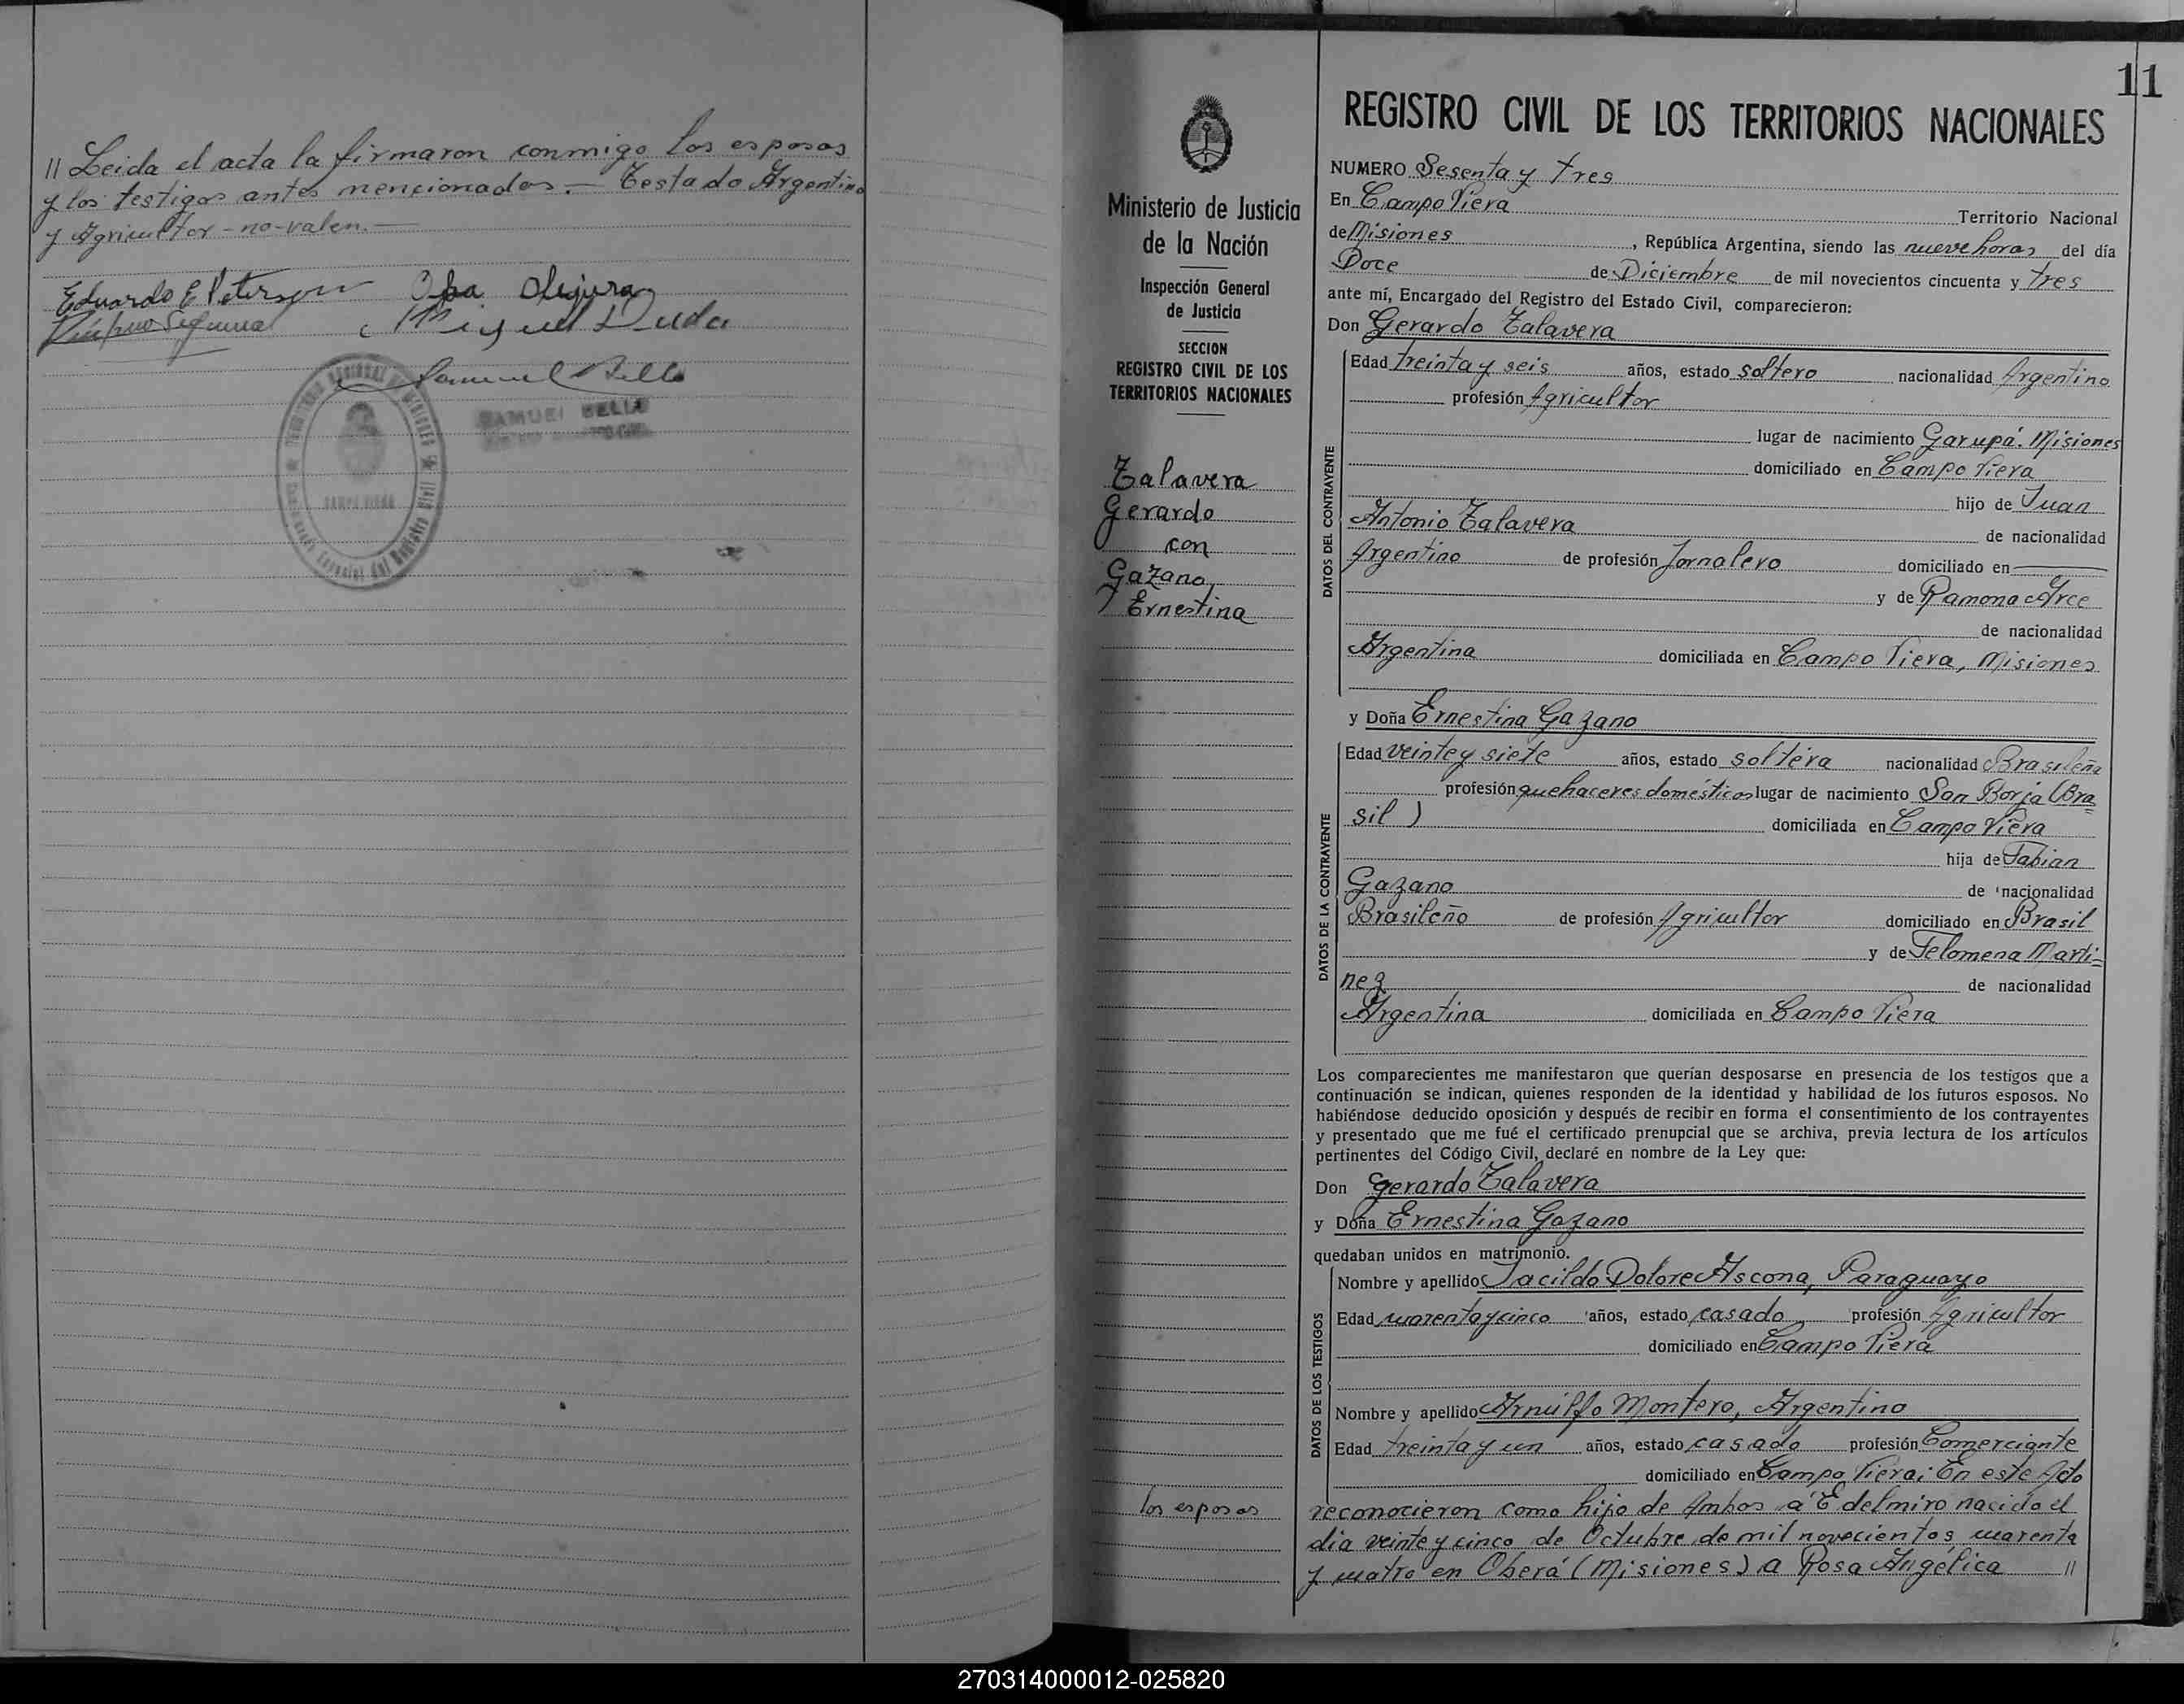 // Leida el acta la firmaron conmigo los esposos
y los testigos antes mencionados.— Testado Argentino
y Agricultor - no - valen.—
Eduardo E Peterson
Miguel Duda
Samuel Bella
SAMUEL BELLA
11
REGISTRO CIVIL DE LOS TERRITORIOS NACIONALES
Ministerio de Justicia
de la Nación
Inspección General
de Justicia
SECCION
REGISTRO CIVIL DE LOS
TERRITORIOS NACIONALES
Talavera
Gerardo
con
Gazano,
Ernestina
NUMERO Sesenta y tres
En Campo Viera Territorio Nacional
de Misiones, República Argentina, siendo las nueve horas del día
Doce de Diciembre de mil novecientos cincuenta y tres
ante mí, Encargado del Registro del Estado Civil, comparecieron:
Don Gerardo Talavera
DATOS DEL CONTRAYENTE
Edad treinta y seis años, estado soltero nacionalidad Argentino
profesión Agricultor
lugar de nacimiento Garupá. Misiones
domiciliado en Campo Viera
hijo de Juan
Antonio Talavera de nacionalidad
Argentino de profesión Jornalero domiciliado en —
y de Ramona Arce
de nacionalidad
Argentina domiciliada en Campo Viera, Misiones
y Doña Ernestina Gazano
DATOS DE LA CONTRAYENTE
Edad veinte y siete años, estado soltera nacionalidad Brasileña
profesión quehaceres domésticos lugar de nacimiento San Borja (Bra=
sil) domiciliada en Campo Viera
hija de Fabian
Gazano de nacionalidad
Brasileño de profesión Agricultor domiciliado en Brasil
y de Felomena Marti=
nez de nacionalidad
Argentina domiciliada en Campo Viera
Los comparecientes me manifestaron que querían desposarse en presencia de los testigos que a
continuación se indican, quienes responden de la identidad y habilidad de los futuros esposos. No
habiéndose deducido oposición y después de recibir en forma el consentimiento de los contrayentes
y presentado que me fué el certificado prenupcial que se archiva, previa lectura de los artículos
pertinentes del Código Civil, declaré en nombre de la Ley que:
Don Gerardo Talavera
y Doña Ernestina Gazano
quedaban unidos en matrimonio.
DATOS DE LOS TESTIGOS
Nombre y apellido Dolore Ascona, Paraguayo
Edad cuarenta y cinco años, estado casado profesión Agricultor
domiciliado en Campo Viera
Nombre y apellido Arnulfo Montero, Argentino
Edad treinta y un años, estado casado profesión Comerciante
domiciliado en Campo Viera; En este Acto
los esposos reconocieron como hijo de Ambos a Edelmiro nacido el
dia veinte y cinco de Octubre de mil novecientos cuarenta
y cuatro en Oberá (Misiones) a Rosa Angélica //
270314000012-025820